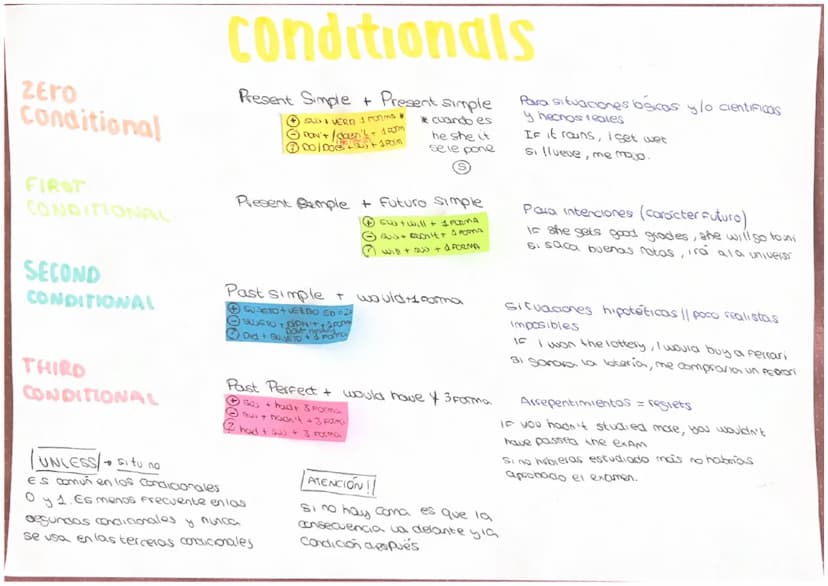 Conditionals
ZERO
Conditional
Present Simple + Present simple
⊕ suj + VERB 1 FORMA *
⊖ DON'T / doesn't + 1 FORM
? DO / DOES + suj + 1 FORM
* cuando es
he she it
se le pone
S
Para situaciones lógicas y/o científicas
y hechos reales
IF it rains, I get wet
si llueve, me mojo.
FIRST
CONDITIONAL
Present Simple + Futuro simple
⊕ suj + will + 1 FORMA
⊖ suj + won't + 1 FORMA
? will + suj + 1 FORMA
Para intenciones (carácter futuro)
IF she gets good grades, she will go to uni
si saca buenas notas, irá a la univer
SECOND
CONDITIONAL
Past simple + would + 1 forma
⊕ SUJETO + VERBO ED =
⊖ SUJETO + DIDN'T + 1 FORM
? Did + SUJETO + 1 FORMA
situaciones hipotéticas // poco realistas
imposibles
IF I won the lottery, I would buy a Ferrari
Si ganara la lotería, me compraría un Ferrari
THIRD
CONDITIONAL
Past Perfect + would have + 3 FORMA
⊕ suj + had + 3 FORMA
⊖ suj + hadn't + 3 FORMA
? had + suj + 3 FORMA
Arrepentimientos = regrets
IF you hadn't studied more, you wouldn't
have passed the exam
Si no hubieras estudiado más no habrías
aprobado el examen.
UNLESS → si tu no
Es común en los condicionales
0 y 1. Es menos frecuente en las
segundas condicionales y nunca
se usa en las terceras condicionales
ATENCIÓN!
si no hay coma es que la
consecuencia va delante y la
condición después